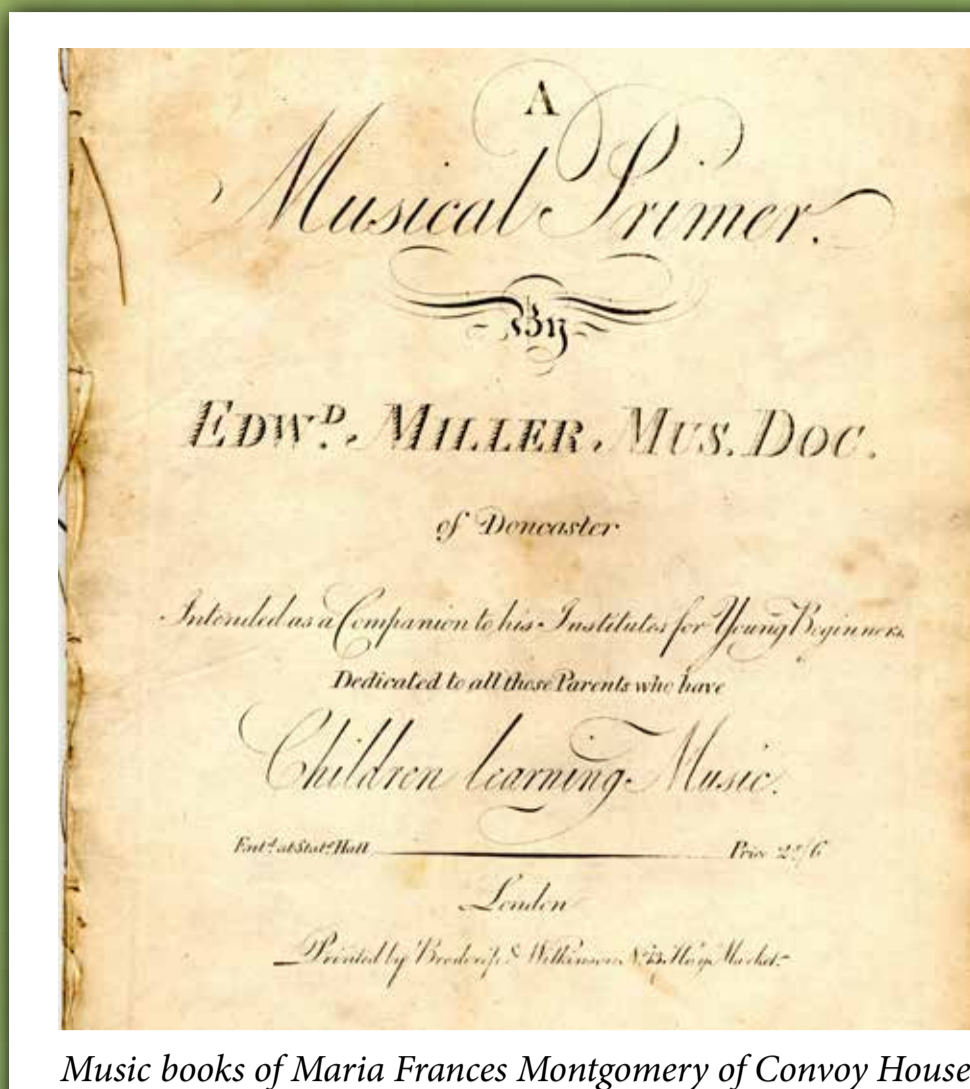 A
Musical Primer.
By
EDWD. MILLER. MUS. DOC.
of Doncaster
Intended as a Companion to his Institutes for Young Beginners.
Dedicated to all those Parents who have
Children learning Music.
Entd. at Stats. Hall Price 2s/6
London
Printed by Broderip & Wilkinson No. 13. Hay Market.
Music books of Maria Frances Montgomery of Convoy House